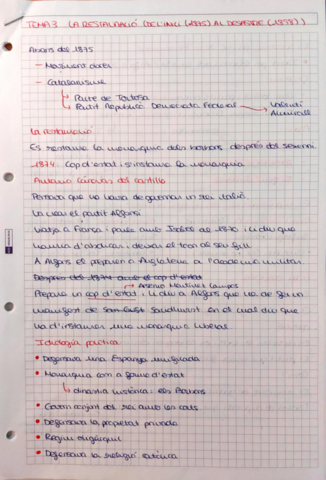 TEMA 3 LA RESTAURACIÓ (DE L'INICI (1875) AL DESASTRE (1898))
Abans del 1875
- Moviment obrer
- Catalanisme
Pacte de Tortosa
Partit Republicà Democràta Federal → Valentí
Almirall
La restauració
Es restaura la monarquia dels borbons després del sexenni.
1874: Cop d'estat i s'instaura la monarquia
Antonio Cánovas del Castillo
Pensava que no havia de governar un rei italià.
Va crear el partit Alfonsí
Viatja a França i parla amb Isabel al 1870 i li diu que
hauria d'abdicar i deixar el tron al seu fill.
A Alfons el preparen a Anglaterra a l'acadèmia militar.
Després del 1874 amb el cop d'estat
Arsenio Martínez Campos
Prepara un cop d'estat i li diu a Alfons que ha de fer un
manifest de Sandhurst en el qual diu que
ha d'instaurar una monarquia liberal.
Ideologia política
• Defensava una Espanya unificada
• Monarquia com a forma d'estat
dinastia històrica: els Borbons
• Govern conjunt del rei amb les corts
• Defensava la propietat privada
• Règim oligàrquic
• Defensava la religió catòlica